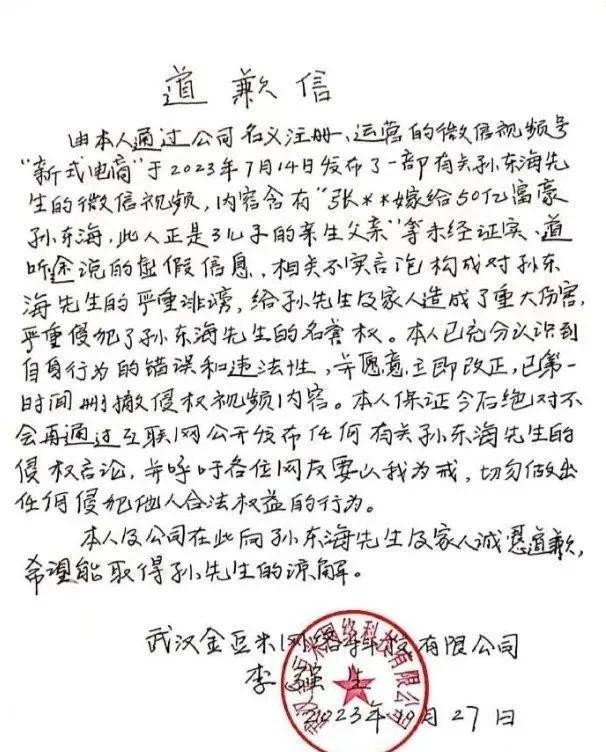 道歉信
由本人通过公司名义注册、运营的微信视频号
"新式电商"于2023年7月14日发布了一部有关孙东海先
生的微信视频，内容含有"张**嫁给50亿富豪
孙东海，此人正是3儿子的亲生父亲"等未经证实、道
听途说的虚假信息，相关不实言论构成对孙东
海先生的严重诽谤，给孙先生及家人造成了重大伤害，
严重侵犯了孙东海先生的名誉权。本人已充分认识到
自身行为的错误和违法性，并愿意立即改正，已第一
时间删撤侵权视频内容。本人保证今后绝对不
会再通过互联网公开发布任何有关孙东海先生的
侵权言论，并呼吁各位网友要以我为戒，切勿做出
任何侵犯他人合法权益的行为。
本人及公司在此向孙东海先生及家人诚恳道歉，
希望能取得孙先生的谅解。
武汉金豆米网络科技有限公司
李强生
2023年10月27日
武汉金豆米网络科技有限公司